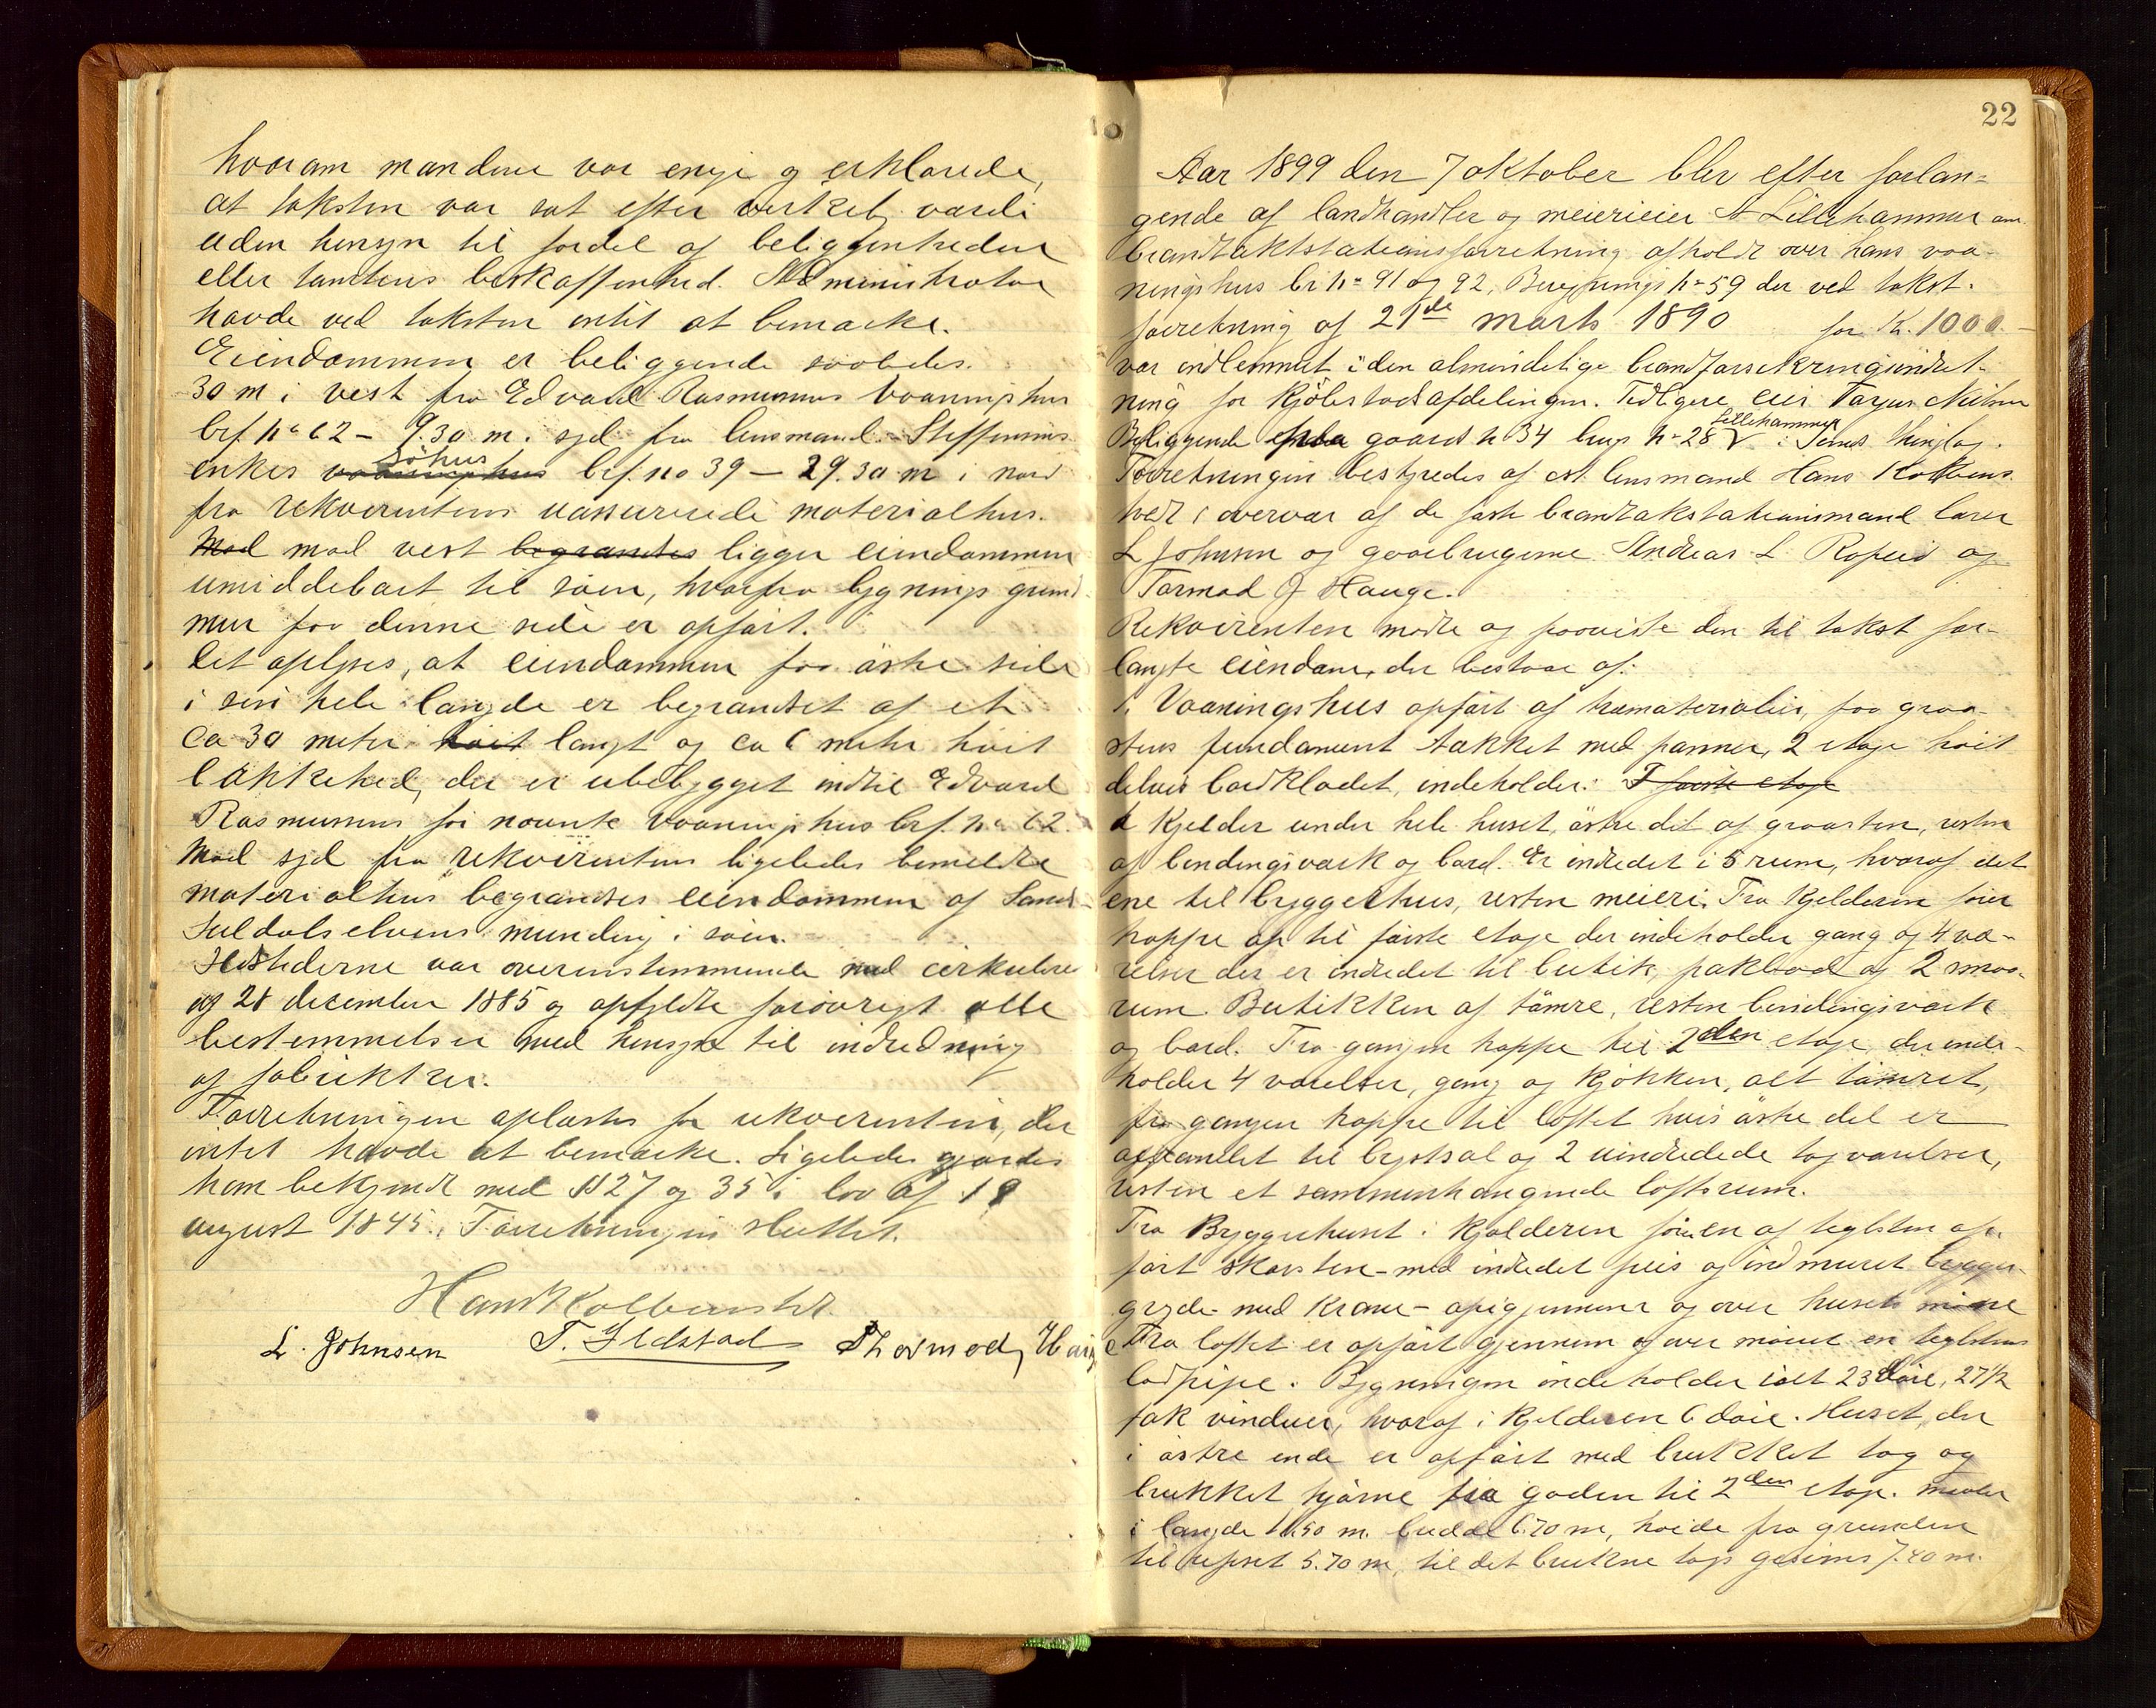 hvorom mændene var enige og erklærede,
at taksten var sat efter verkelig værdi
uden hensyn til fordel af beliggenheden
eller tomtens beskaffenhed. Administrator
havde ved taksten intet at bemærke.
Eiendommen er beliggende saaledes.
30 m i vest fra Edvard Rasmussens vaaningshus
brf. no 62 – 9.30 m. syd fra lensmand Steffensens
enkes vaaningshus Söhus brf. no 39 – 29.30 m i nord
fra rekvirentens uassurerede materialhus.
Mod mod vest begrændses ligger eiendommen
umiddelbart til søen, hvorfra bygnings grund
mur paa denne side er opført.
Det oplyses, at eiendommen paa østre side
i sin hele længde er begrændset af et
ca 30 meter høit langt og ca 6 meter høit
bakkeheld, der er ubebygget indtil Edvard
Rasmussens før nævnte vaaningshus brf. no 62.
Mod syd fra rekvirentens ligeledes bemeldte
materialhus begrændses eiendommen af Sand
Suldalselvens munding i søen.
Ildstederne var overensstemmende med cirkulære
af 28 december 1885 og opfyldte forøvrigt alle
bestemmelser med hensyn til indredning
af fabrikker.
Forretningen oplæstes for rekvirenten, der
intet havde at bemærke. Ligeledes gjordes
han bekjendt med §§ 27 og 35 i lov af 19
august 1845. Forretningen sluttet.
Hans Kolbenstvedt.
L. Johnsen T. Ildstad Thormod Hauge
22
Aar 1899 den 7 oktober blev efter forlan-
gende af landhandler og meierieier A Lillehammer
brandtakstationsforretning afholdt over hans vaa-
ningshus br no 91 og 92, Bygnings no 59 der ved takst-
forretning af 21de marts 1890 for Kr. 1000 –
var indlemmet i den almindelige brandforsikringsindret-
ning for Kjøbstadsafdelingen. Tidligere eier Torjus Nilsen
Beliggende paa gaards n 34 brugs no 28 Lillehammer i Sands thinglag.
Forretningen bestyredes af cst. lensmand Hans Kolbens-
tvedt i overvær af de faste brandtakstationsmænd lærer
L Johnsen og gaardbrugerne Andreas L Ropeid og
Tormod J Hauge.
Rekvirenten mødte og paaviste den til takst for-
langte eiendom, der bestaar af:
1. Vaaningshus opført af træmaterialier, paa graa-
stens fundament takket med panner, 2 etage høit
delvis bordklædet, indeholder: I første etage
a Kjelder under hele huset, østre del af graasten, resten
af bindingsværk og bord. Er indredet i 5 rum, hvoraf det
ene til bryggerhus, resten meieri. Fra kjelderen fører
trappe op til første etage der indeholder gang og 4 væ-
relser der er indredet til butik, pakbod og 2 smaa-
rum. Butikken af tømre, resten bindingsværk
og bord. Fra gangen trappe til 2den etage, der inde-
holder 4 værelser, gang og kjøkken, alt tømret,
fra gangen trappe til loftet hvis østre del er
afpanelet til brystsal og 2 uindredede tagværelser,
resten et sammenhængende loftsrum.
Fra Bryggerhuset i kjælderen fører en af teglsten op-
ført skorsten – med indredet peis og indmuret brygger-
gryde – med krane – opigjennem og over husets møne
Fra loftet er opført gjennem og over mønet en teglstens
lodpipe. Bygningen indeholder ialt 23 døre, 27 1/2
fak vinduer, hvoraf i kjelderen 6 døre. Huset, der
i østre ende er opført med brukket tag og
brukket hjørne fra gaden til 2den etage. maaler
i længde 11.50 m. bredde 6.70 m, høide fra grunden
til røstet 5.70 m, til det brukne tags gesims 7.40 m.